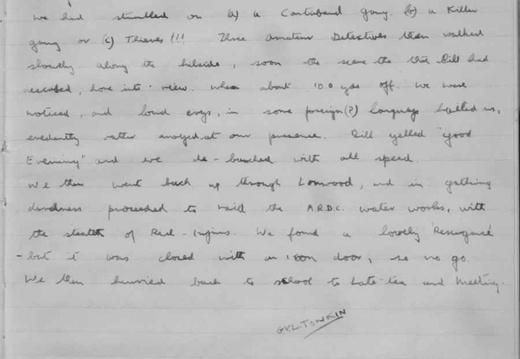 we had stumbled on a) a Contraband gang. (b) a Killer
gang or (c) Thieves!!! Three Amateur Detectives then walked
slowly along the hillside, soon the scene the that Bill had
described, hove into view. When about 100 yds off. We were
noticed, and loud crys, in some foreign(?) Language hailed us,
evedently rather anoyed at our presence. Bill yelled "good
Evening" and we de-bunked with all speed.
We then went back up through Lonwood, and in gathering
darkness proceeded to raid the A.R.D.C. water works, with
the stealth of Red-Injuns. We found a lovely
-but it was closed with an iron door, so no go.
We then hurried back to school to Late tea and Meeting.